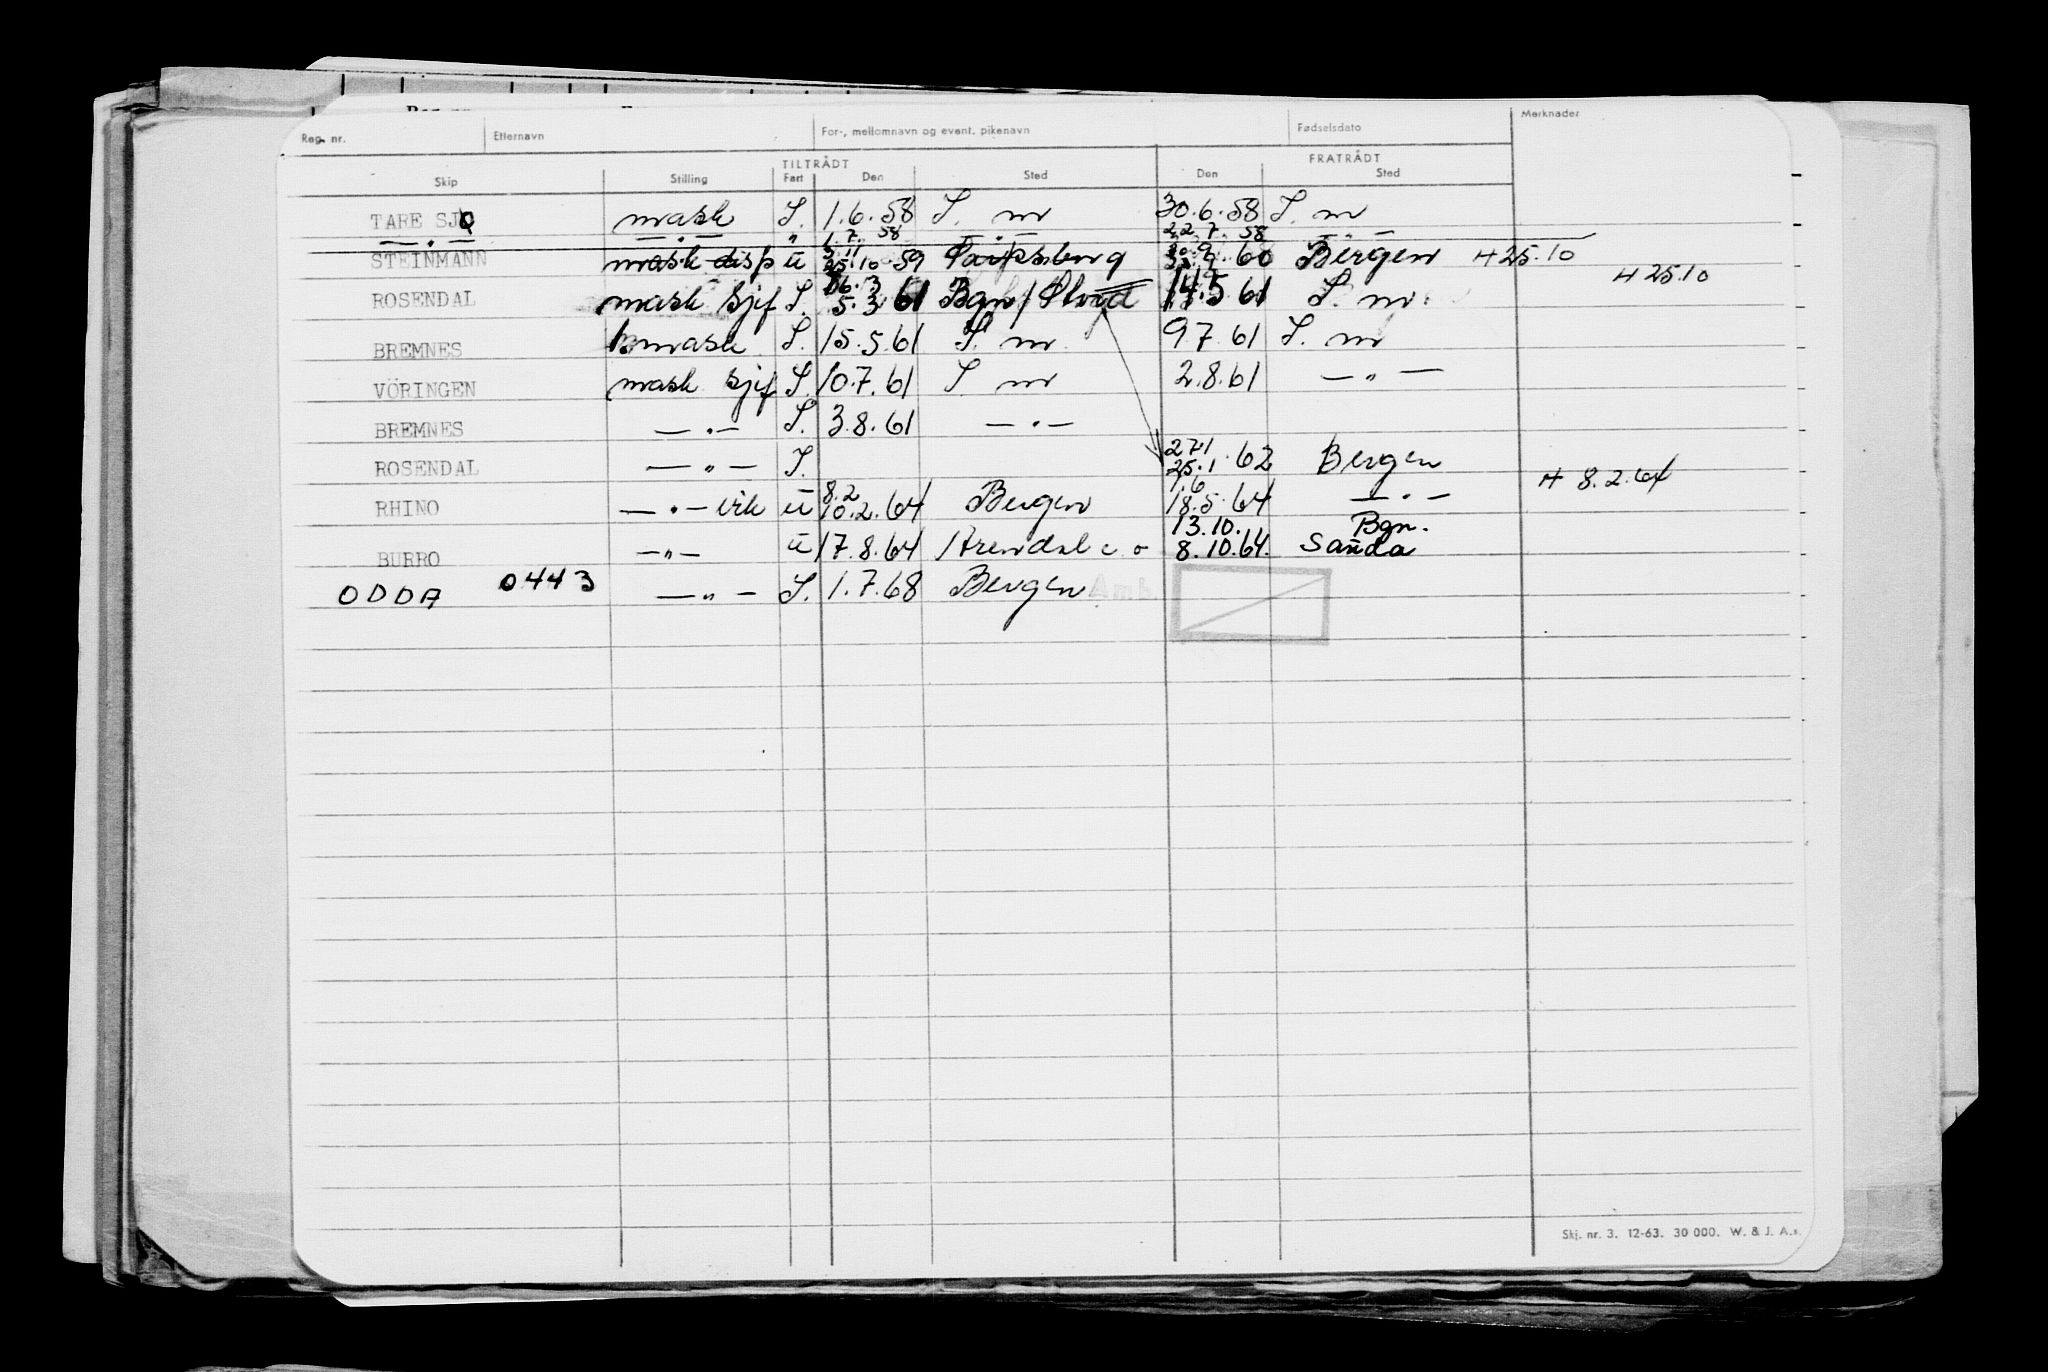 Reg. nr. Etternavn For-, mellomnavn og event. pikenavn Fødselsdato Merknader
TILTRÅDT FRATRÅDT
Skip Stilling Fart Den Sted Den Sted
TARE SJØ mask S. 1.6.58 S. nr 30.6.58 S. nr
— " — — " — " 1.7.58 — " — 22.7.58 — " —
STEINMANN mask disp u 25.10.59 Sarpsborg 60 Bergen H 25.10
H 25.10
ROSENDAL mask sjef S. 5.3 61 Bgn / 14.5 61 S. nr
BREMNES mask S. 15.5.61 S. nr 9.7.61 S. nr
VÖRINGEN mask sjef S. 10.7.61 S nr 2.8.61 — " —
BREMNES — " — S. 3.8.61 — " —
27.1
ROSENDAL — " — S. 25.1.62 Bergen
8.2 1.6 H 8.2.64
RHINO — " — vik u 10.2.64 Bergen 18.5.64 — " —
13.10. Bgn.
BURRO — " — u 17.8.64 Arendal 8.10.64. Sauda
ODDA 0443 — " — S. 1.7.68 Bergen
Skj. nr. 3. 12-63. 30 000. W. & J. A.s.